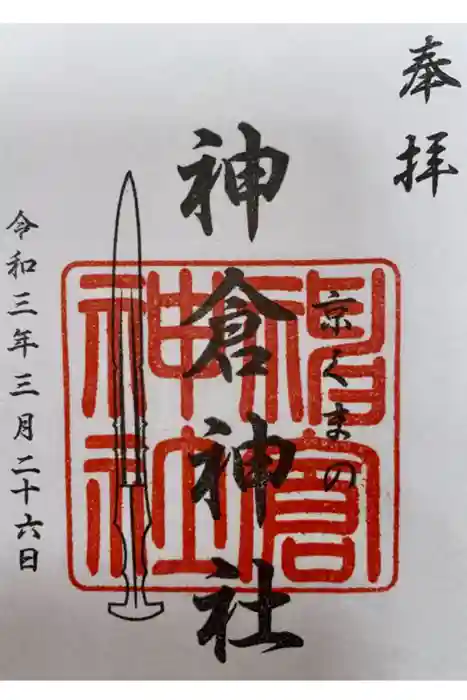 奉拝
京くまの
神倉神社
神倉神社
令和三年三月二十六日